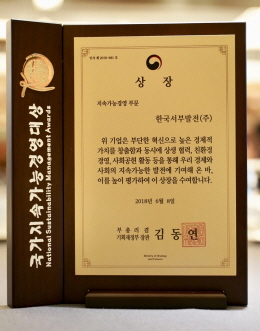 국가지속가능경영대상
National Sustainability Management Awards
상 장
지속가능경영 부문
한국서부발전(주)
위 기업은 부단한 혁신으로 높은 경제적
가치를 창출함과 동시에 상생 협력, 친환경
경영, 사회공헌 활동 등을 통해 우리 경제와
사회의 지속가능한 발전에 기여해 온 바,
이를 높이 평가하여 이 상장을 수여합니다.
2018년 6월 8일
부총리겸
기획재정부장관 김동연